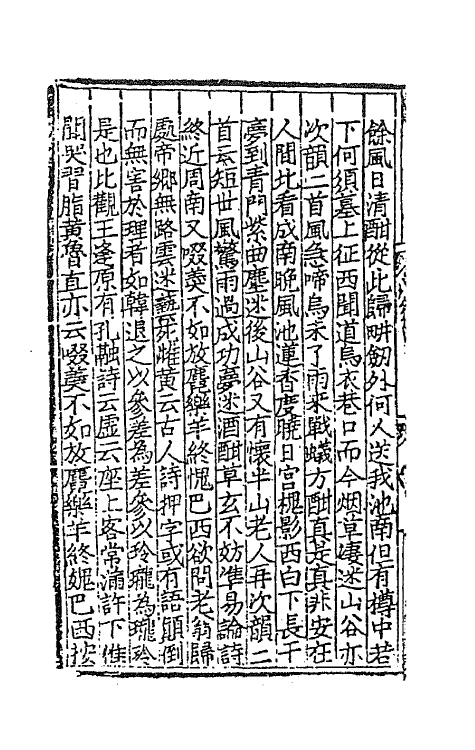 餘風日清酣從此歸畊劔外何人送我池南但有樽中若
下何須墓上征西聞道烏衣巷口而今烟草凄迷山谷亦
次韻二首風急啼烏未了雨來戰蟻方酣真是真非安在
人間北看成南晚風池蓮香度曉日宫槐影西白下長干
夢到青門紫曲塵迷後山谷又有懷半山老人再次韻二
首云短世風驚雨過成功夢迷酒酣草玄不妨準易論詩
終近周南又啜羮不如放麑樂羊終愧巴西欲問老翁歸
處帝鄉無路雲迷藝苑雌黄云古人詩押字或有語顛倒
而無害於理者如韓退之以參差為差參以玲瓏為瓏玲
是也比觀王逢原有孔融詩云虚云座上客常滿許下惟
聞哭習脂黄魯直亦云啜羮不如放麑樂羊終媿巴西按